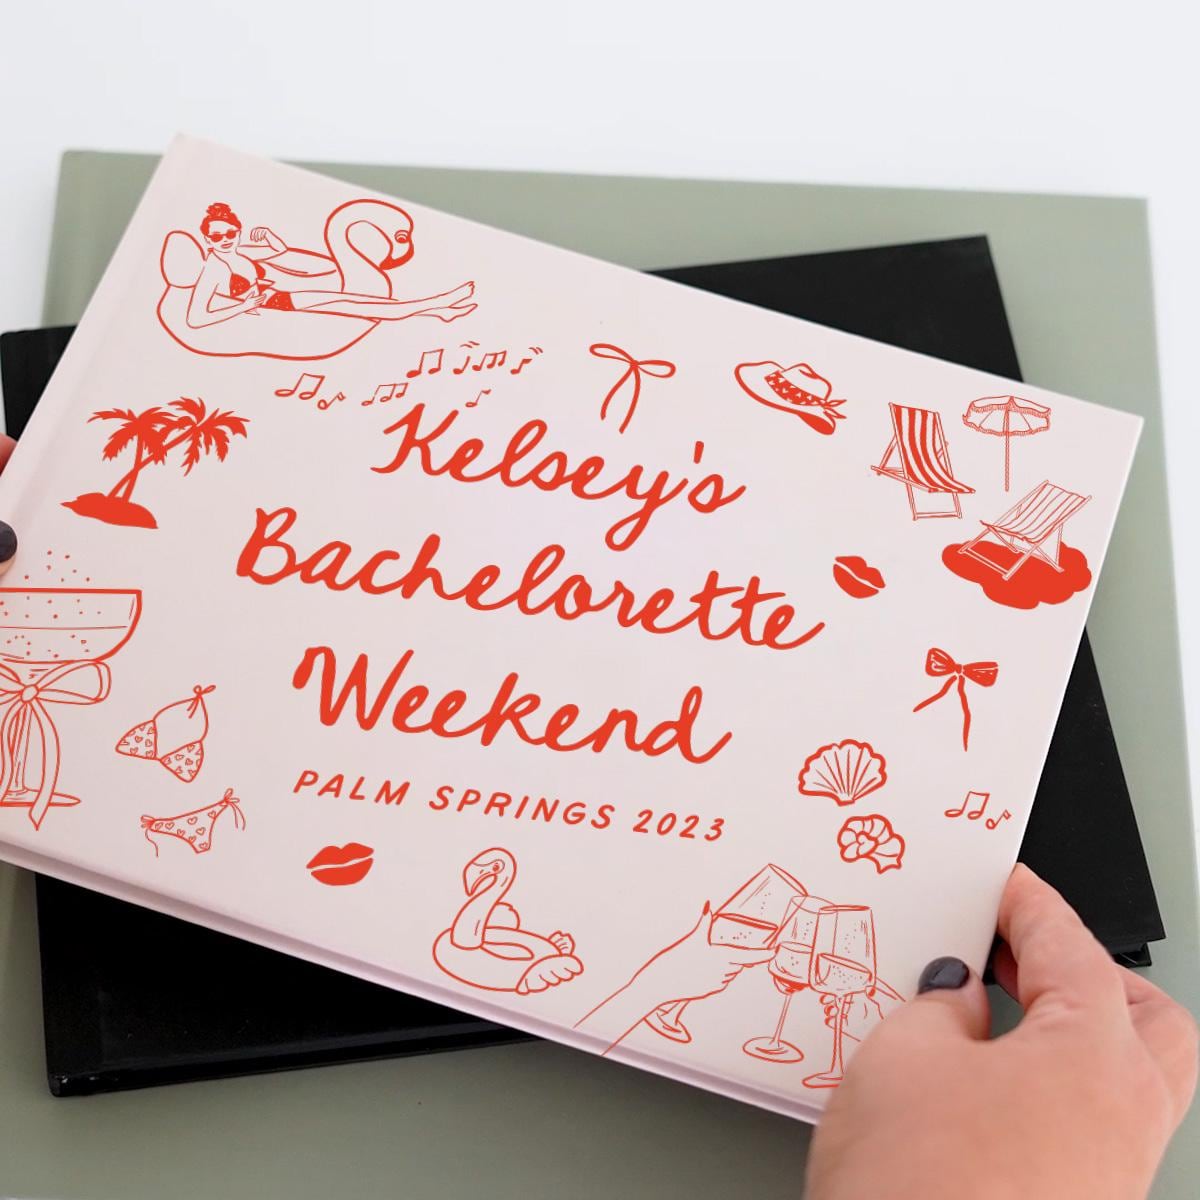 Kelsey's
Bachelorette
Weekend
PALM SPRINGS 2023